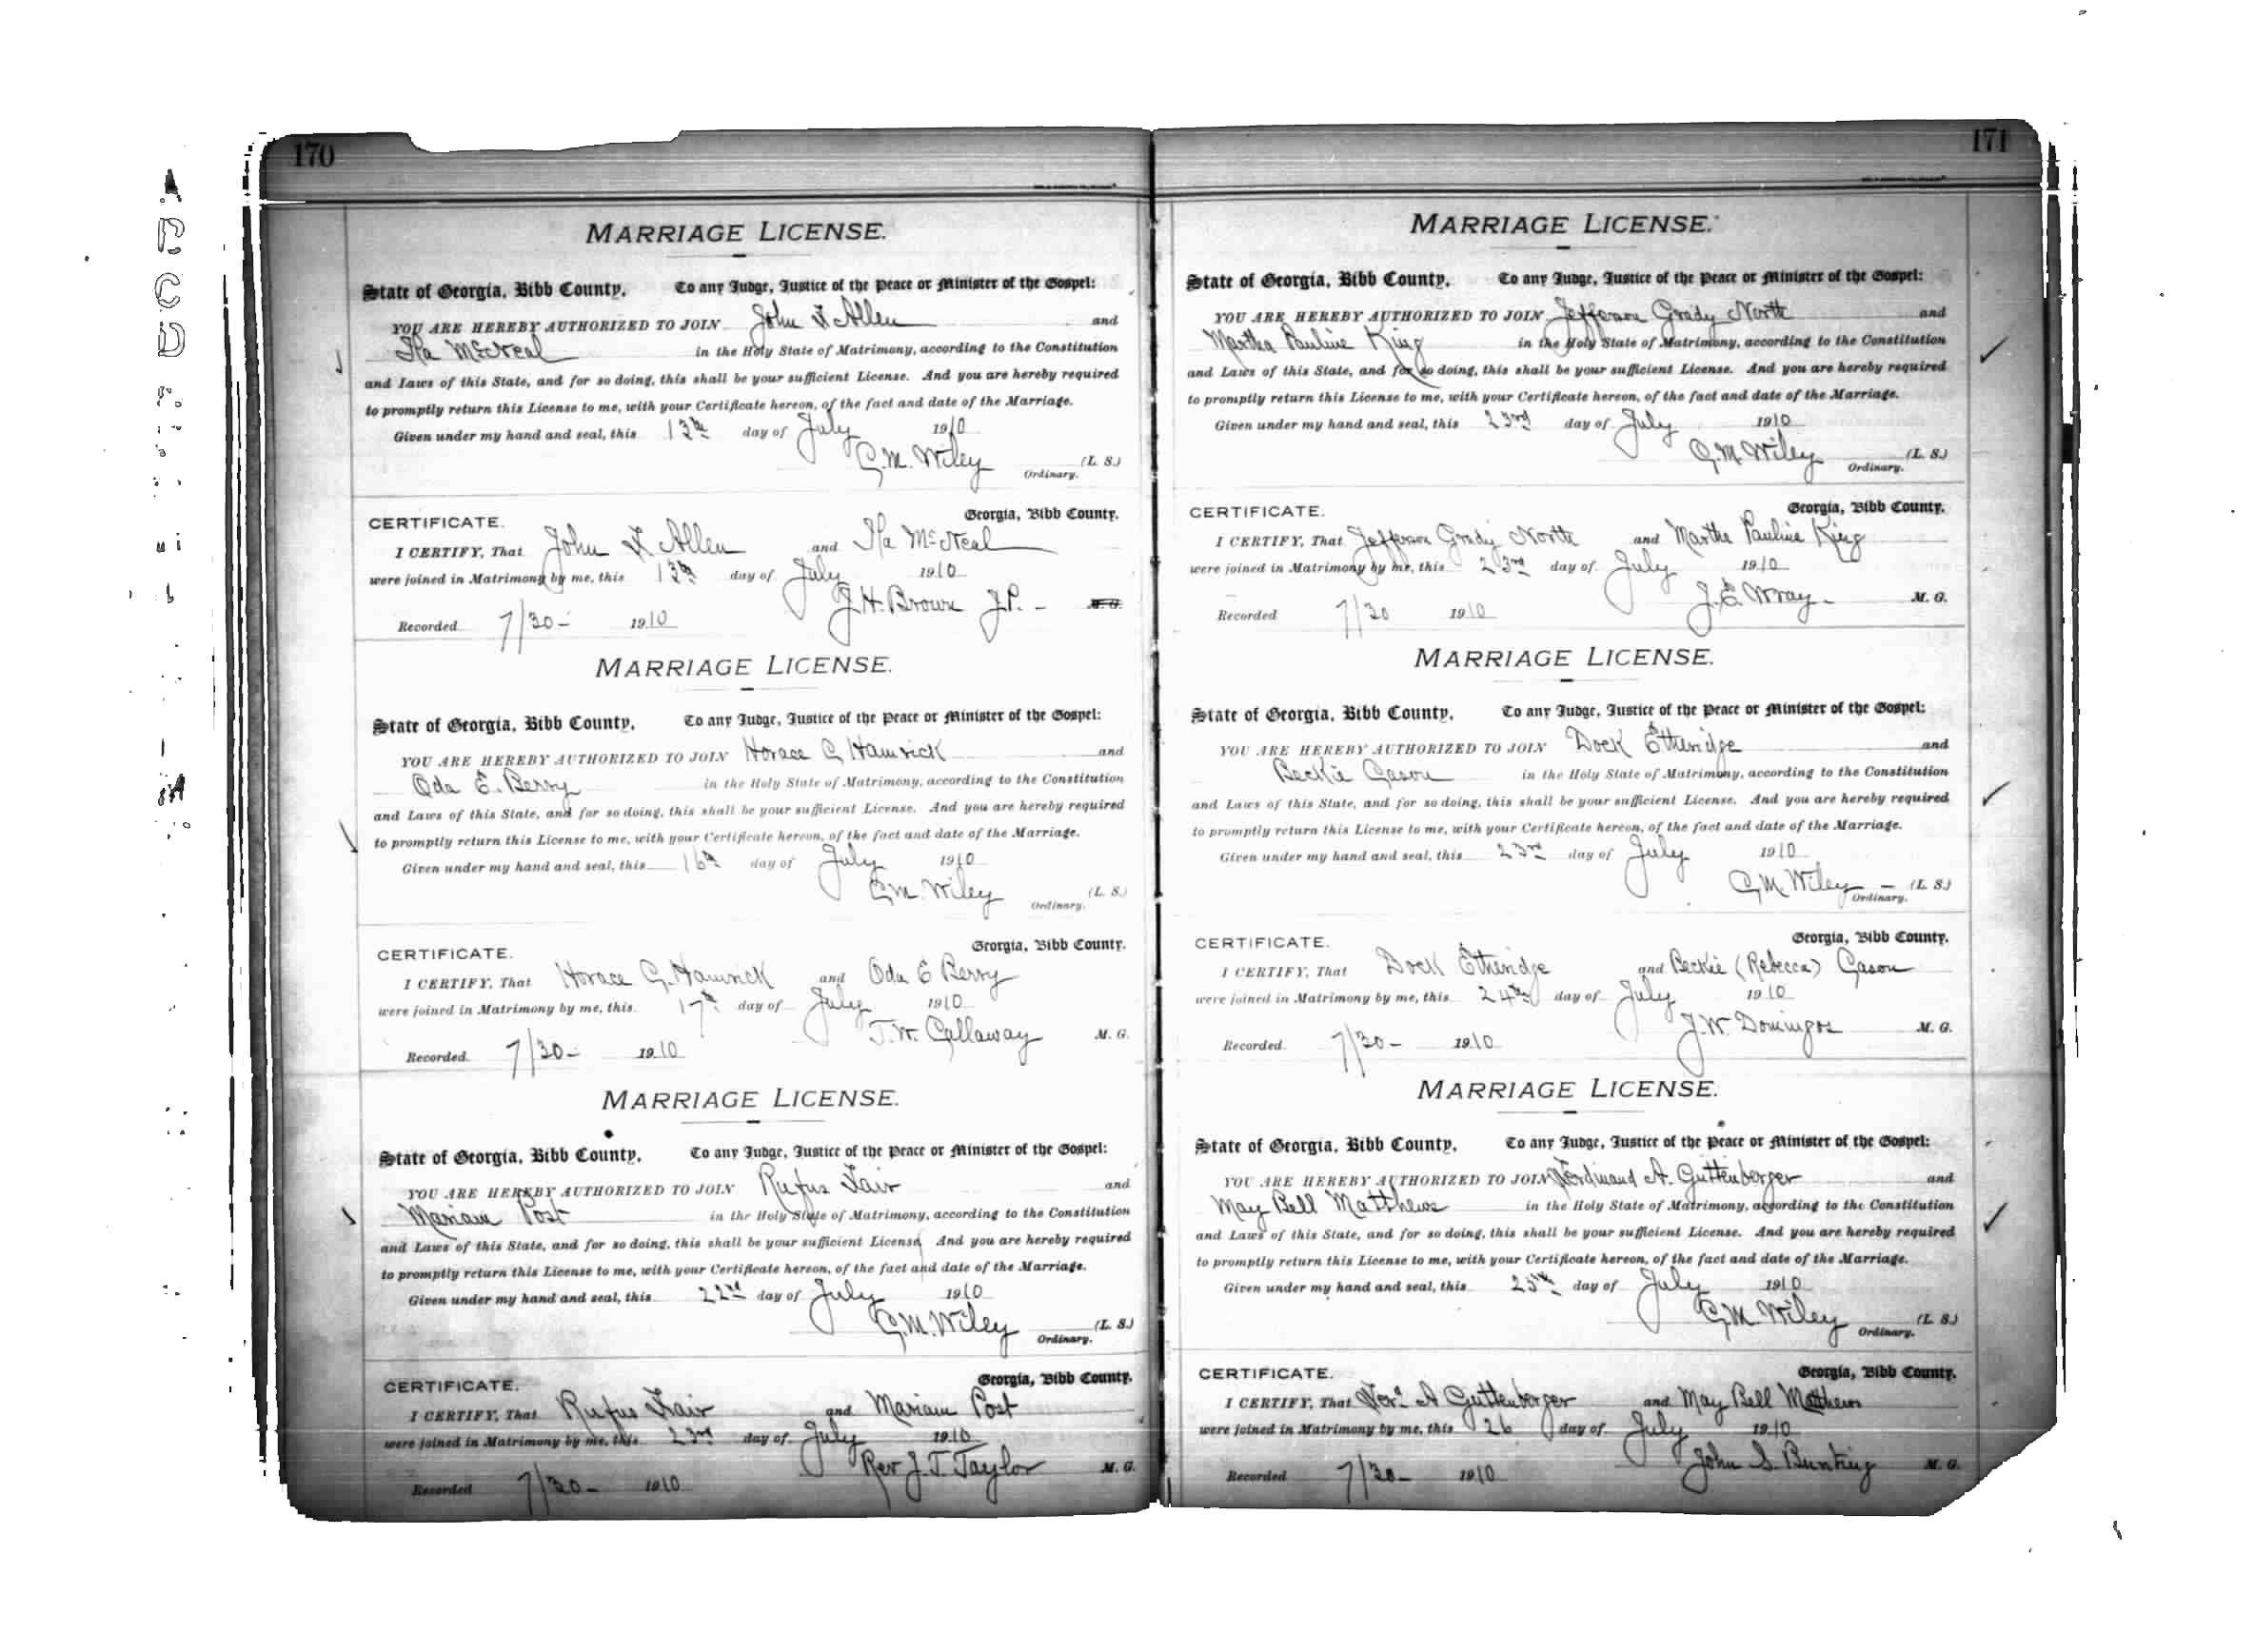 170
MARRIAGE LICENSE.
State of Georgia, Bibb County. To any Judge, Justice of the Peace or Minister of the Gospel:
YOU ARE HEREBY AUTHORIZED TO JOIN John F Allen and
Ila McNeal in the Holy State of Matrimony, according to the Constitution
and Laws of this State, and for so doing, this shall be your sufficient License. And you are hereby required
to promptly return this License to me, with your Certificate hereon, of the fact and date of the Marriage.
Given under my hand and seal, this 13th day of July 1910
G.M. Wiley (L. S.)
Ordinary.
CERTIFICATE. Georgia, Bibb County.
I CERTIFY, That John F Allen and Ila McNeal
were joined in Matrimony by me, this 13th day of July 1910
J.H. Brown J.P. - M. G.
Recorded 7/30- 1910
MARRIAGE LICENSE.
State of Georgia, Bibb County. To any Judge, Justice of the Peace or Minister of the Gospel:
YOU ARE HEREBY AUTHORIZED TO JOIN Horace G Hamrick and
Oda E. Berry in the Holy State of Matrimony, according to the Constitution
and Laws of this State, and for so doing, this shall be your sufficient License. And you are hereby required
to promptly return this License to me, with your Certificate hereon, of the fact and date of the Marriage.
Given under my hand and seal, this 16th day of July 1910
G.M. Wiley (L. S.)
Ordinary.
CERTIFICATE. Georgia, Bibb County.
I CERTIFY, That Horace G. Hamrick and Oda E Berry
were joined in Matrimony by me, this 17th day of July 1910
T.W. Callaway M. G.
Recorded 7/30- 1910
MARRIAGE LICENSE.
State of Georgia, Bibb County. To any Judge, Justice of the Peace or Minister of the Gospel:
YOU ARE HEREBY AUTHORIZED TO JOIN Rufus Fair and
Mariam Post in the Holy State of Matrimony, according to the Constitution
and Laws of this State, and for so doing, this shall be your sufficient License. And you are hereby required
to promptly return this License to me, with your Certificate hereon, of the fact and date of the Marriage.
Given under my hand and seal, this 22nd day of July 1910
G.M. Wiley (L. S.)
Ordinary.
CERTIFICATE. Georgia, Bibb County.
I CERTIFY, That Rufus Fair and Mariam Post
were joined in Matrimony by me, this 23rd day of July 1910
Rev J.T. Taylor M. G.
Recorded 7/30- 1910
171
MARRIAGE LICENSE.
State of Georgia, Bibb County. To any Judge, Justice of the Peace or Minister of the Gospel:
YOU ARE HEREBY AUTHORIZED TO JOIN Jefferson Grady North and
Martha Pauline King in the Holy State of Matrimony, according to the Constitution
and Laws of this State, and for so doing, this shall be your sufficient License. And you are hereby required
to promptly return this License to me, with your Certificate hereon, of the fact and date of the Marriage.
Given under my hand and seal, this 23rd day of July 1910
G.M. Wiley (L. S.)
Ordinary.
CERTIFICATE. Georgia, Bibb County.
I CERTIFY, That Jefferson Grady North and Martha Pauline King
were joined in Matrimony by me, this 23rd day of July 1910
J.E. Wray. M. G.
Recorded 7/30 1910
MARRIAGE LICENSE.
State of Georgia, Bibb County. To any Judge, Justice of the Peace or Minister of the Gospel:
YOU ARE HEREBY AUTHORIZED TO JOIN Dock Etheridge and
Beckie Gason in the Holy State of Matrimony, according to the Constitution
and Laws of this State, and for so doing, this shall be your sufficient License. And you are hereby required
to promptly return this License to me, with your Certificate hereon, of the fact and date of the Marriage.
Given under my hand and seal, this 23rd day of July 1910
G.M. Wiley - (L. S.)
Ordinary.
CERTIFICATE. Georgia, Bibb County.
I CERTIFY, That Dock Etheridge and Beckie (Rebecca) Gason
were joined in Matrimony by me, this 24th day of July 1910
J.W. Domingos M. G.
Recorded 7/30- 1910
MARRIAGE LICENSE.
State of Georgia, Bibb County. To any Judge, Justice of the Peace or Minister of the Gospel:
YOU ARE HEREBY AUTHORIZED TO JOIN Ferdinand A. Guttenberger and
May Bell Matthews in the Holy State of Matrimony, according to the Constitution
and Laws of this State, and for so doing, this shall be your sufficient License. And you are hereby required
to promptly return this License to me, with your Certificate hereon, of the fact and date of the Marriage.
Given under my hand and seal, this 25th day of July 1910
G.M. Wiley (L. S.)
Ordinary.
CERTIFICATE. Georgia, Bibb County.
I CERTIFY, That Ferd A Guttenberger and May Bell Matthews
were joined in Matrimony by me, this 26 day of July 1910
John S. Bunting M. G.
Recorded 7/30- 1910